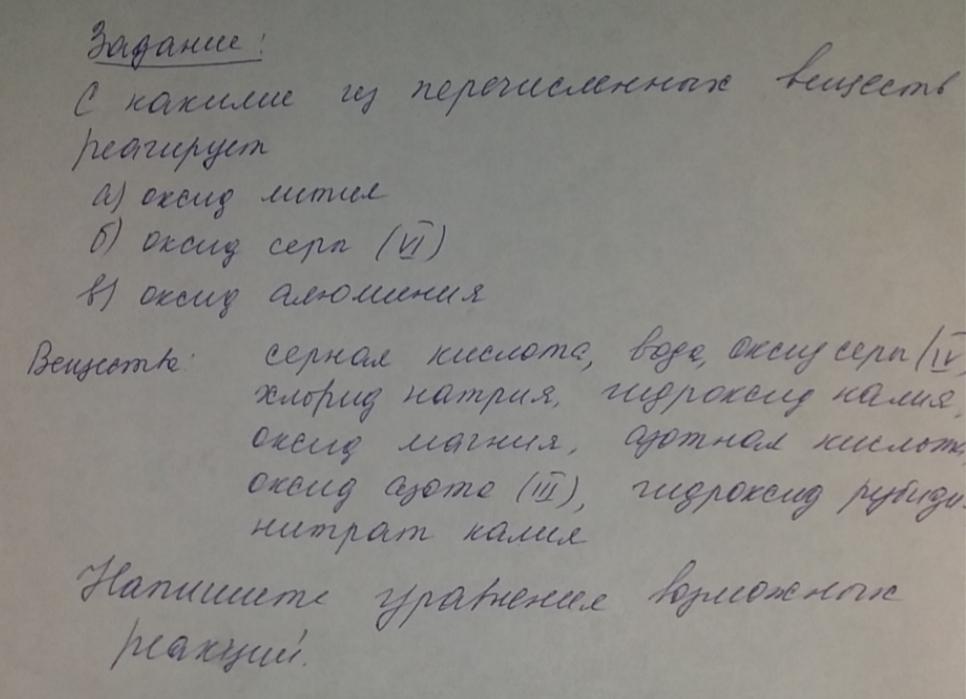 Задание:
С какими из перечисленных веществ
реагирует
а) оксид лития
б) оксид серы (VI)
в) оксид алюминия
Вещества: серная кислота, вода, оксид серы (IV
хлорид натрия, гидроксид калия,
оксид магния, азотная кислота,
оксид азота (III), гидроксид рубиди
нитрат калия
Напишите уравнения возможных
реакций.